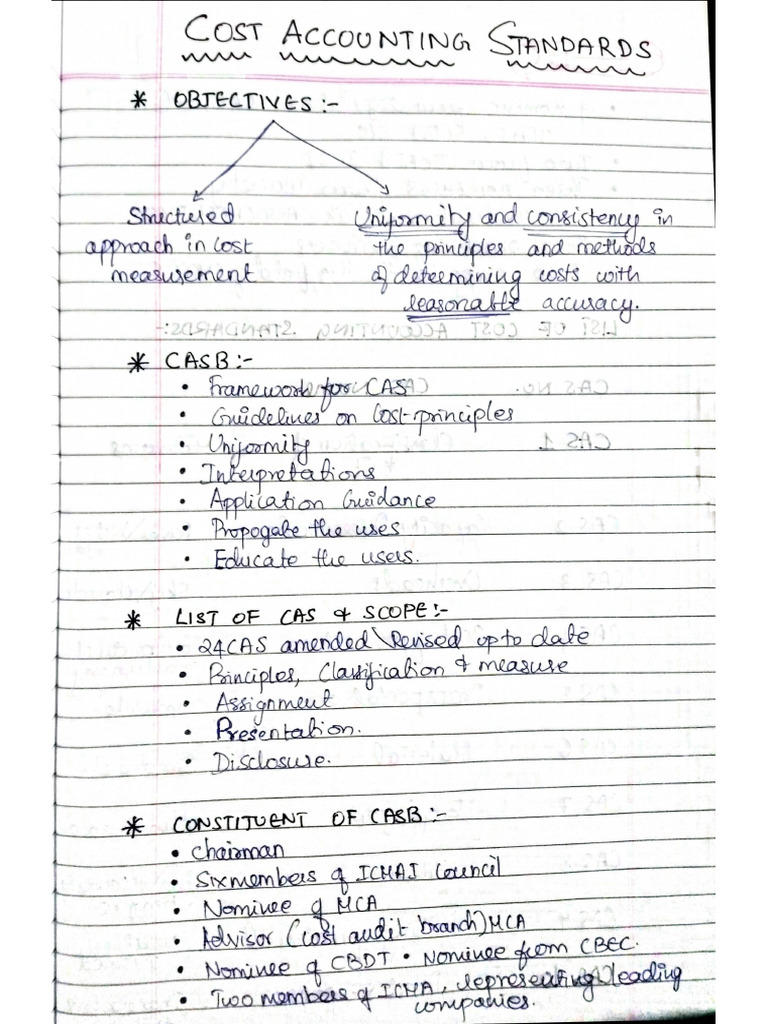 COST ACCOUNTING STANDARDS
* OBJECTIVES :-
Structured approach in cost measurement
Uniformity and consistency in the principles and methods of determining costs with reasonable accuracy.
* CASB :-
• Framework for CAS
• Guidelines on Cost principles
• Uniformity
• Interpretations
• Application Guidance
• Propogate the uses
• Educate the users.
* LIST OF CAS & SCOPE :-
• 24 CAS amended \ Revised up to date
• Principles, Classification & measure
• Assignment
• Presentation.
• Disclosure.
* CONSTITUENT OF CASB :-
• Chairman
• Six members of ICMAI Council
• Nominee of MCA
• Advisor (cost audit branch) MCA
• Nominee of CBDT • Nominee from CBEC.
• Two members of ICMA, representing leading companies.